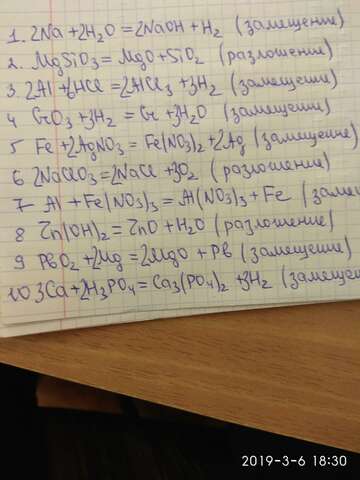 1. 2Na + 2H₂O = 2NaOH + H₂ (замещение)
2. MgSiO₃ = MgO + SiO₂ (разложение)
3 2Al + 6HCl = 2AlCl₃ + 3H₂ (замещение)
4 CrO₃ + 3H₂ = Cr + 3H₂O (замещение)
5 Fe + 2AgNO₃ = Fe(NO₃)₂ + 2Ag (замещение)
6 2NaClO₃ = 2NaCl + 3O₂ (разложение)
7 Al + Fe(NO₃)₃ = Al(NO₃)₃ + Fe (заме
8 Zn(OH)₂ = ZnO + H₂O (разложение)
9 PbO₂ + 2Mg = 2MgO + Pb (замещение)
10 3Ca + 2H₃PO₄ = Ca₃(PO₄)₂ + 3H₂ (замещен
2019-3-6 18:30